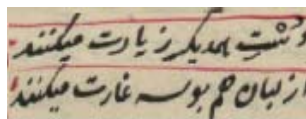 دست همدیگر زیارت میکنند
از لبان هم بوسه غارت میکنند